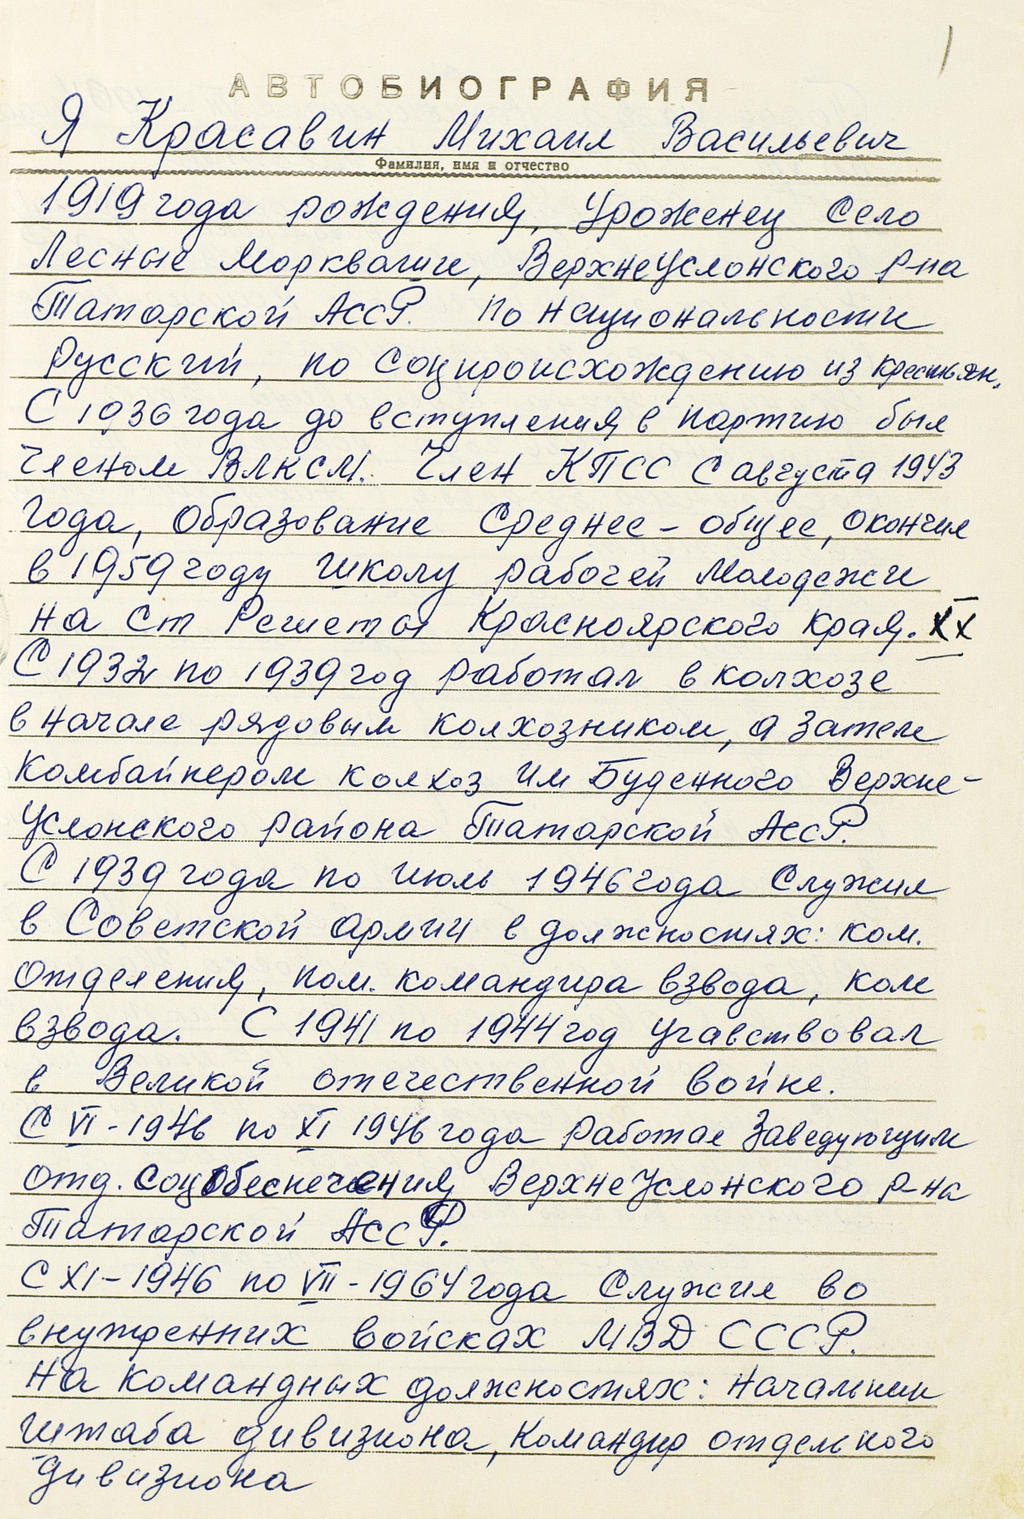 1
АВТОБИОГРАФИЯ
Я Красавин Михаил Васильевич
Фамилия, имя и отчество
1919 года рождения, Уроженец Село
Лесные Моркваши, ВерхнеУслонского р-на
Татарской АссР. По национальности
Русский, по соцпроисхождению из крестьян.
С 1936 года до вступления в партию был
Членом ВЛКСМ. Член КПСС с августа 1943
года, Образование Среднее-общее, окончил
в 1959 году школу рабочей Молодежи
на ст Решеты Красноярского края. XX
С 1932 по 1939 год работал в колхозе
в начале рядовым колхозником, а затем
Комбайнером колхоз им Буденного Верхне-
Услонского района Татарской АссР.
С 1939 года по июль 1946 года Служил
в Советской армии в должностях: ком.
отделения, пом. командира взвода, ком
взвода. С 1941 по 1944 год учавствовал
в Великой отечественной войне.
С VI-1946 по XI 1946 года работал Заведующим
отд. соцобеспечения ВерхнеУслонского р-на
Татарской АссР.
С XI-1946 по VII-1964 года Служил во
внутренних войсках МВД СССР.
На командных должностях: начальник
штаба дивизиона, Командир отдельного
дивизиона